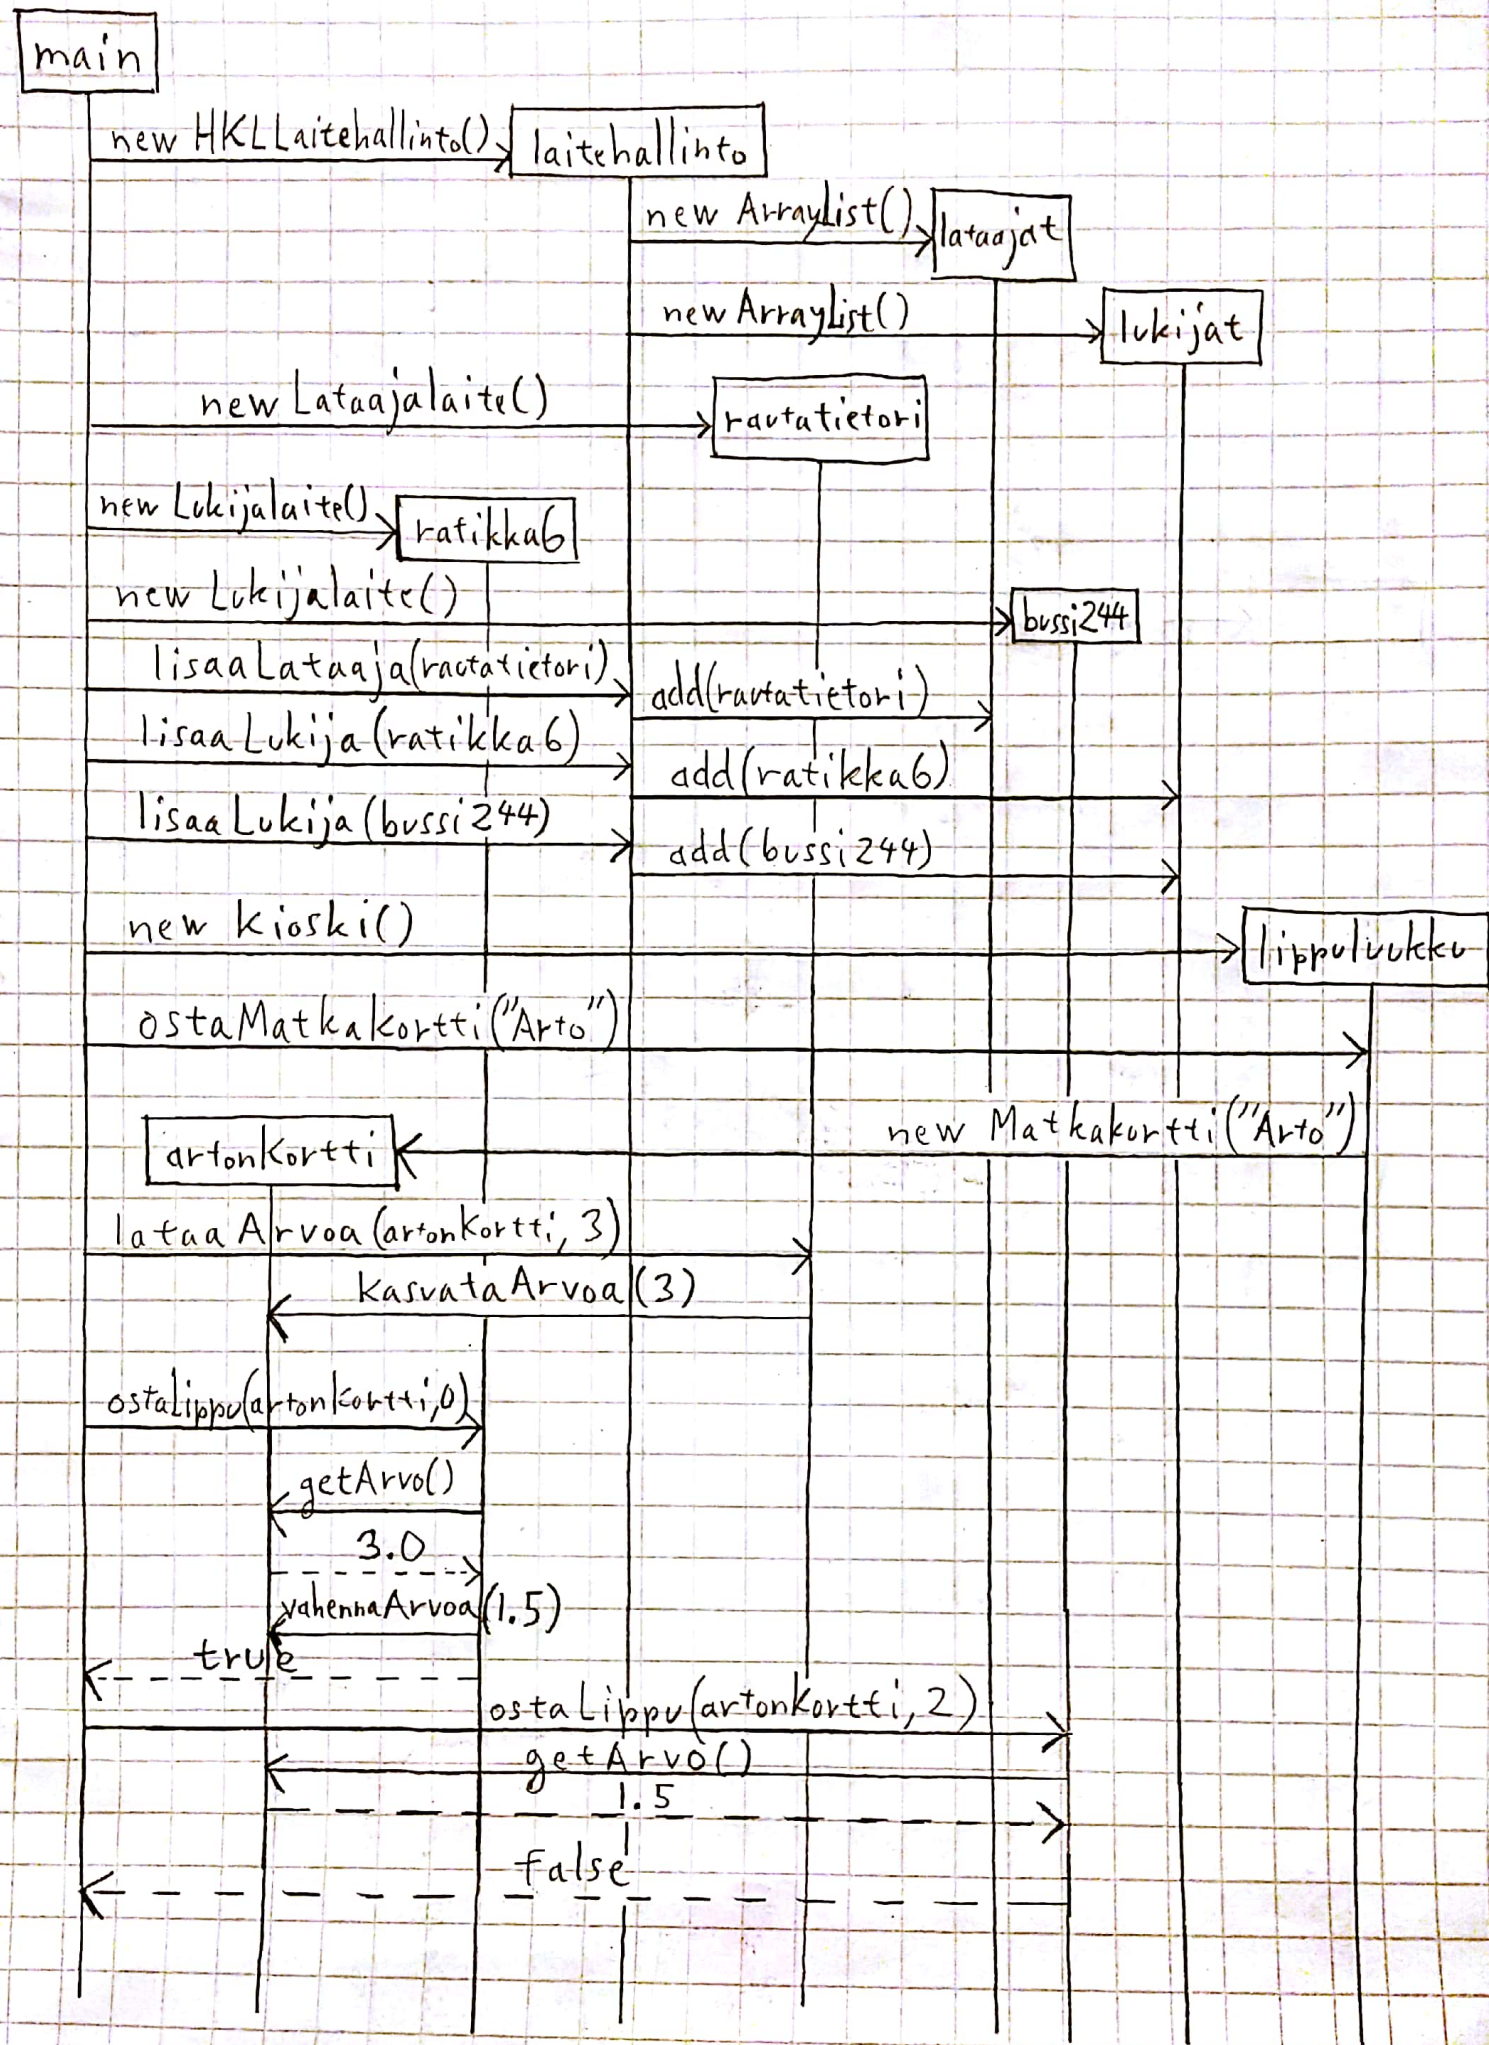 main
new HKLLaitehallinto()
laitehallinto
new ArrayList()
lataajat
new ArrayList()
lukijat
new Lataajalaite()
rautatietori
new Lukijalaite()
ratikka6
new Lukijalaite()
bussi244
lisaaLataaja(rautatietori)
add(rautatietori)
lisaaLukija(ratikka6)
add(ratikka6)
lisaaLukija(bussi244)
add(bussi244)
new Kioski()
lippuluukku
ostaMatkakortti("Arto")
new Matkakortti("Arto")
artonKortti
lataaArvoa(artonKortti, 3)
kasvataArvoa(3)
ostaLippu(artonKortti,0)
getArvo()
3.0
vahennaArvoa(1.5)
true
ostaLippu(artonKortti, 2)
getArvo()
1.5
false